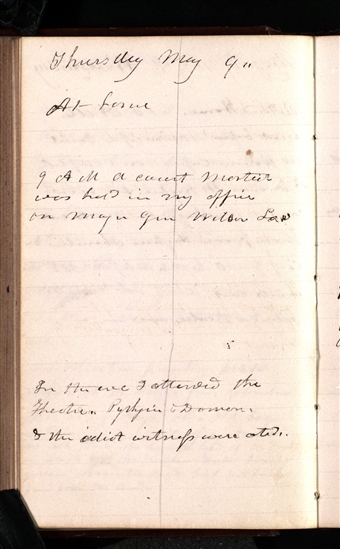 Thursday May 9..
At home
9 A M a court Marteil
was held in my office
on Major Gen Wilson Law
In the eve I attended the
Theatre. Pythyin & Damon.
& the idiot witness were acted..